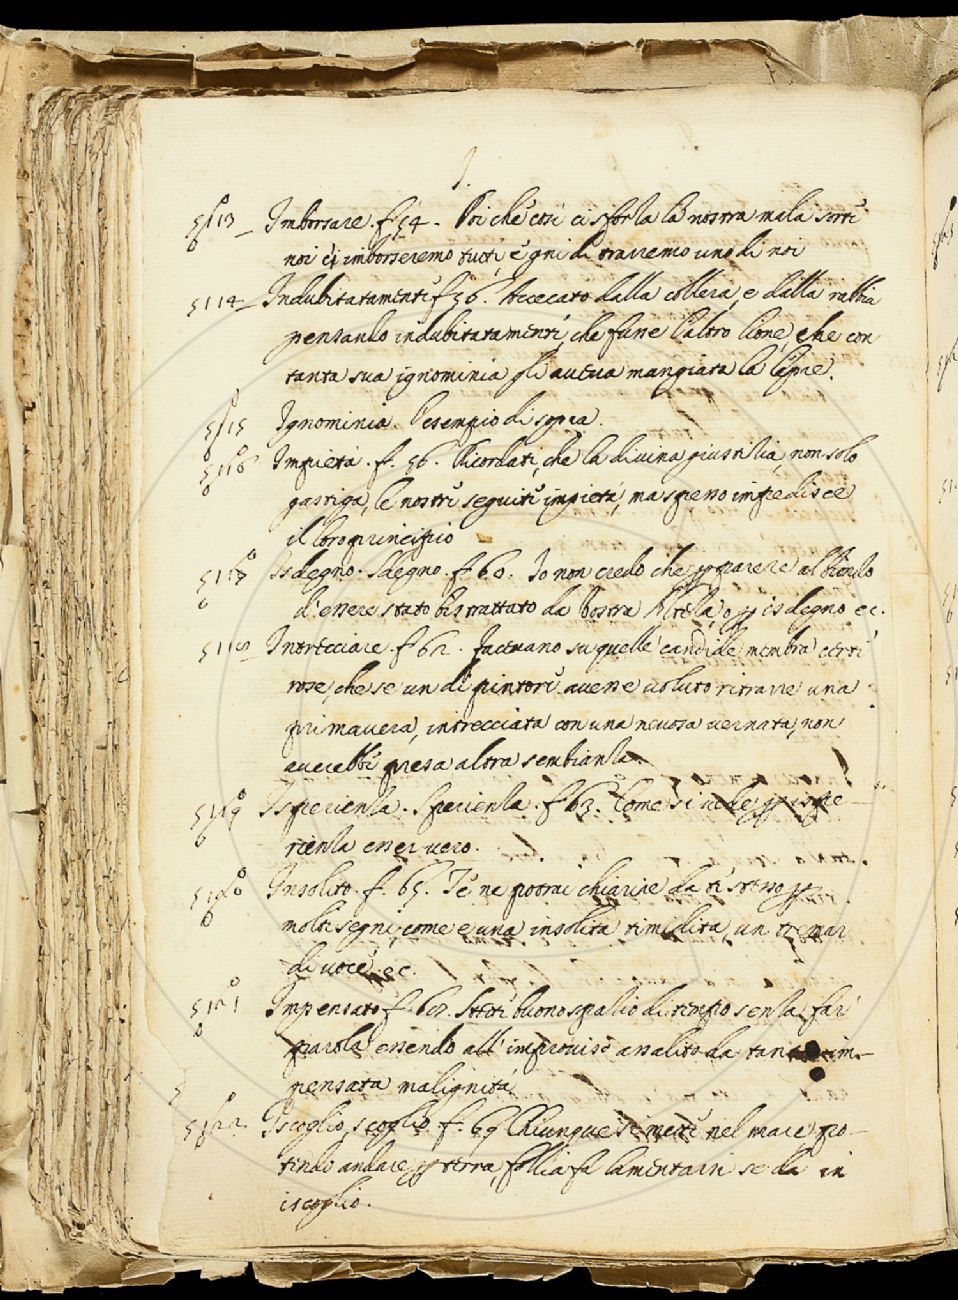 I.
5113 Imborsare. f. 54. Poi che così ci sforza la nostra mala sorte
noi ci imborseremo tutti, e gni di trarremo uno di noi
5114 Indubitatamente f. 56. Accecato dalla collera, e dalla rabbia
pensando indubitatamente, che fusse l'altro lione, che con
tanta sua ignominia gli aueua mangiata la lepre.
5115 Ignominia. l'esempio di sopra.
5116 Impietà. f. 56. Ricordati, che la diuina giustitia, non solo
gastiga, le nostre seguite impietà, ma spesso impedisce
il loro principio
5117 Isdegno. Sdegno. f. 60. Io non credo che per parere al
d'essere stato bistrattato da Vostra Altezza, o per isdegno ec.
5118 Intrecciare f. 62. Faceuano su quelle candide membra certe
rose, che se un di pintore auesse uoluto ritrarre una
primauera, intrecciata con una neuosa uernata, non
auerebbe presa altra sembianza
5119 Isperienza. Sperienza. f. 63. Come si uede per ispe-
rienza esser uero.
5120 Insolito. f. 65. Te ne potrai chiarire da te stesso per
molti segni, come è una insolita timidità, un tremar
di uoce ec.
5121 Impensato f. 67. Stette buono spatio di tempo senza far
parola essendo all'improuiso assalito da tanta im-
pensata malignità
5122 Iscoglio, scoglio. f. 69 Chiunque si mette nel mare po-
tendo andare per terra, follia fa lamentarsi se dà in
iscoglio.